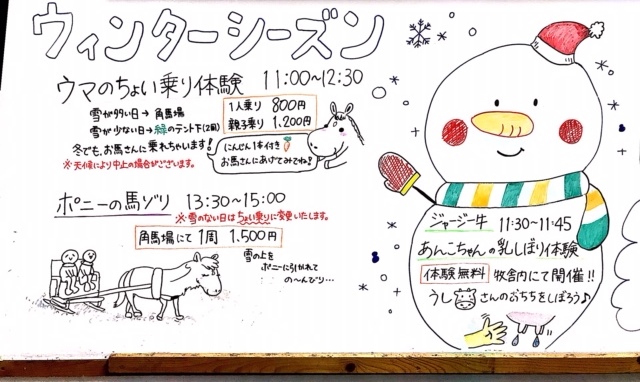 ウィンターシーズン
ウマのちょい乗り体験 11:00~12:30
雪が多い日→ 角馬場
雪が少ない日→緑のテント下(2面)
冬でも、お馬さんに乗れちゃいます!
※天候により中止の場合がございます。
1人乗り 800円
親子乗り 1.200円
にんじん1本付き
お馬さんにあげてみてね!
ポニーの馬ゾリ 13:30~15:00
※雪のない日はちょい乗りに変更いたします。
角馬場にて 1周 1.500円
雪の上を
ポニーに引かれて
の〜んびり…
ジャージー牛 11:30~11:45
あんこちゃんの乳しぼり体験
体験無料 牧舎内にて開催!!
うしさんのおちちをしぼろう♪